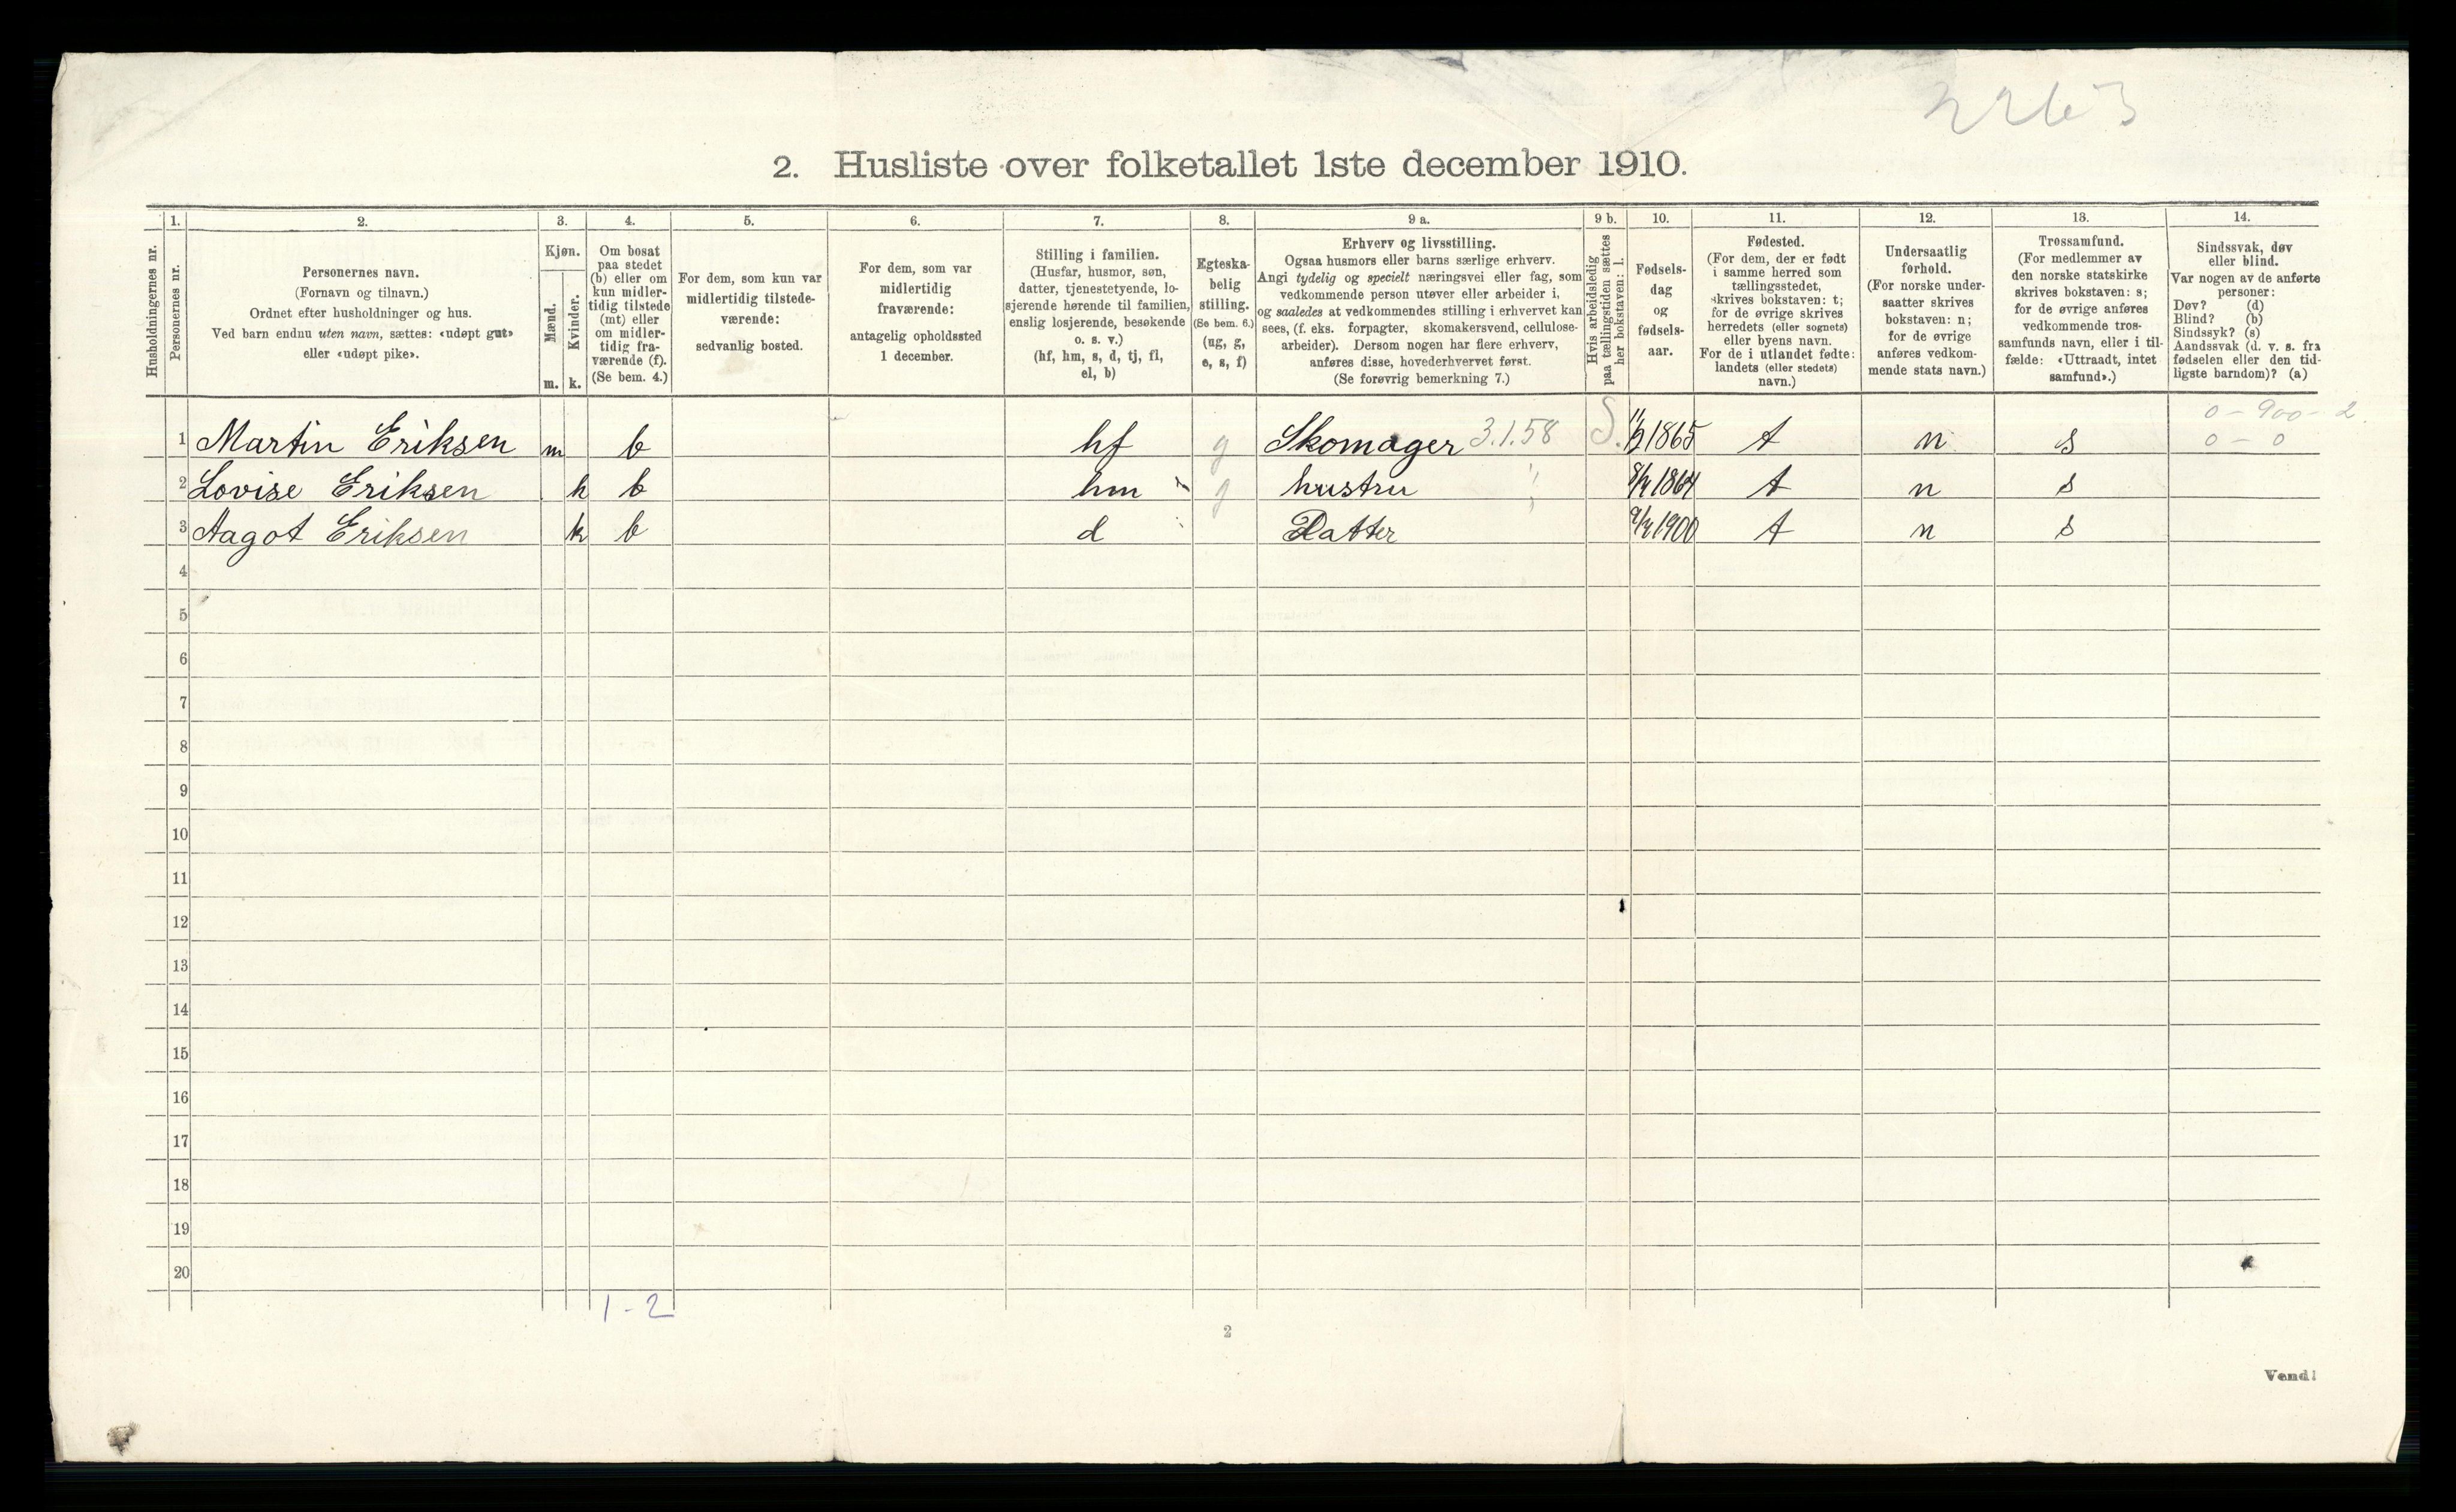 2263
2. Husliste over folketallet 1ste december 1910.
Husholdningernes nr.
1.
Personernes nr.
2.
Personernes navn.
(Fornavn og tilnavn.)
Ordnet efter husholdninger og hus.
Ved barn endnu uten navn, sættes: «udøpt gut»
eller «udøpt pike».
3.
Kjøn.
Mænd.
m.
Kvinder.
k.
4.
Om bosat
paa stedet
(b) eller om
kun midler-
tidig tilstede
(mt) eller
om midler-
tidig fra-
værende (f).
(Se bem. 4.)
5.
For dem, som kun var
midlertidig tilstede-
værende:
sedvanlig bosted.
6.
For dem, som var
midlertidig
fraværende:
antagelig opholdssted
1 december.
7.
Stilling i familien.
(Husfar, husmor, søn,
datter, tjenestetyende, lo-
sjerende hørende til familien,
enslig losjerende, besøkende
o. s. v.)
(hf, hm, s, d, tj, fl,
el, b)
8.
Egteska-
belig
stilling.
(Se bem. 6.)
(ug, g,
e, s, f)
9 a.
Erhverv og livsstilling.
Ogsaa husmors eller barns særlige erhverv.
Angi tydelig og specielt næringsvei eller fag, som
vedkommende person utøver eller arbeider i,
og saaledes at vedkommendes stilling i erhvervet kan
sees, (f. eks. forpagter, skomakersvend, cellulose-
arbeider). Dersom nogen har flere erhverv,
anføres disse, hovederhvervet først.
(Se forøvrig bemerkning 7.)
9 b.
Hvis arbeidsledig
paa tællingstiden sættes
her bokstaven: l.
10.
Fødsels-
dag
og
fødsels-
aar.
11.
Fødested.
(For dem, der er født
i samme herred som
tællingsstedet,
skrives bokstaven: t;
for de øvrige skrives
herredets (eller sognets)
eller byens navn.
For de i utlandet fødte:
landets (eller stedets)
navn.)
12.
Undersaatlig
forhold.
(For norske under-
saatter skrives
bokstaven: n;
for de øvrige
anføres vedkom-
mende stats navn.)
13.
Trossamfund.
(For medlemmer av
den norske statskirke
skrives bokstaven: s;
for de øvrige anføres
vedkommende tros-
samfunds navn, eller i til-
fælde: «Uttraadt, intet
samfund».)
14.
Sindssvak, døv
eller blind.
Var nogen av de anførte
personer:
Døv? (d)
Blind? (b)
Sindssyk? (s)
Aandssvak (d. v. s. fra
fødselen eller den tid-
ligste barndom)? (a)
0 - 900 - 2
1 Martin Eriksen m b hf g Skomager 3.1.58 S. 1865 t n s 0 - 0
2 Lovise Eriksen k b hm g hustru " 8/4 1864 t n s
3 Aagot Eriksen k b d Datter 9/4 1900 t n s
4
5
6
7
8
9
10
11
12
13
14
15
16
17
18
19
20
1 - 2
2
Vend!